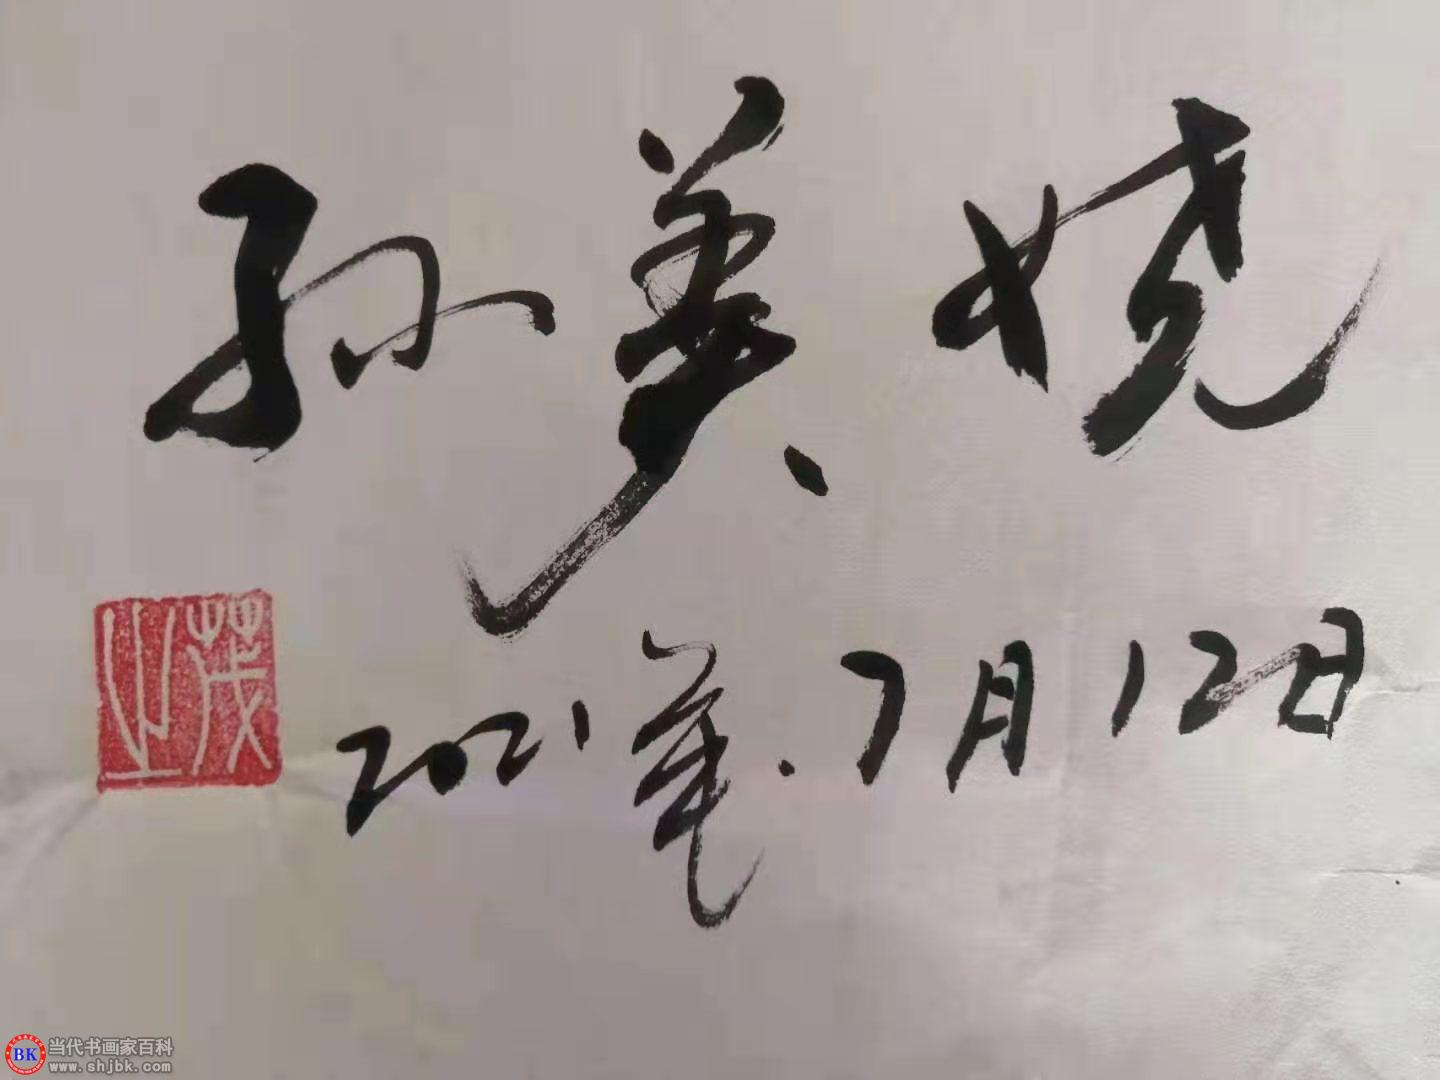 孙美娆
茂之
2021年.7月12日
BK 当代书画家百科
www.shjbk.com